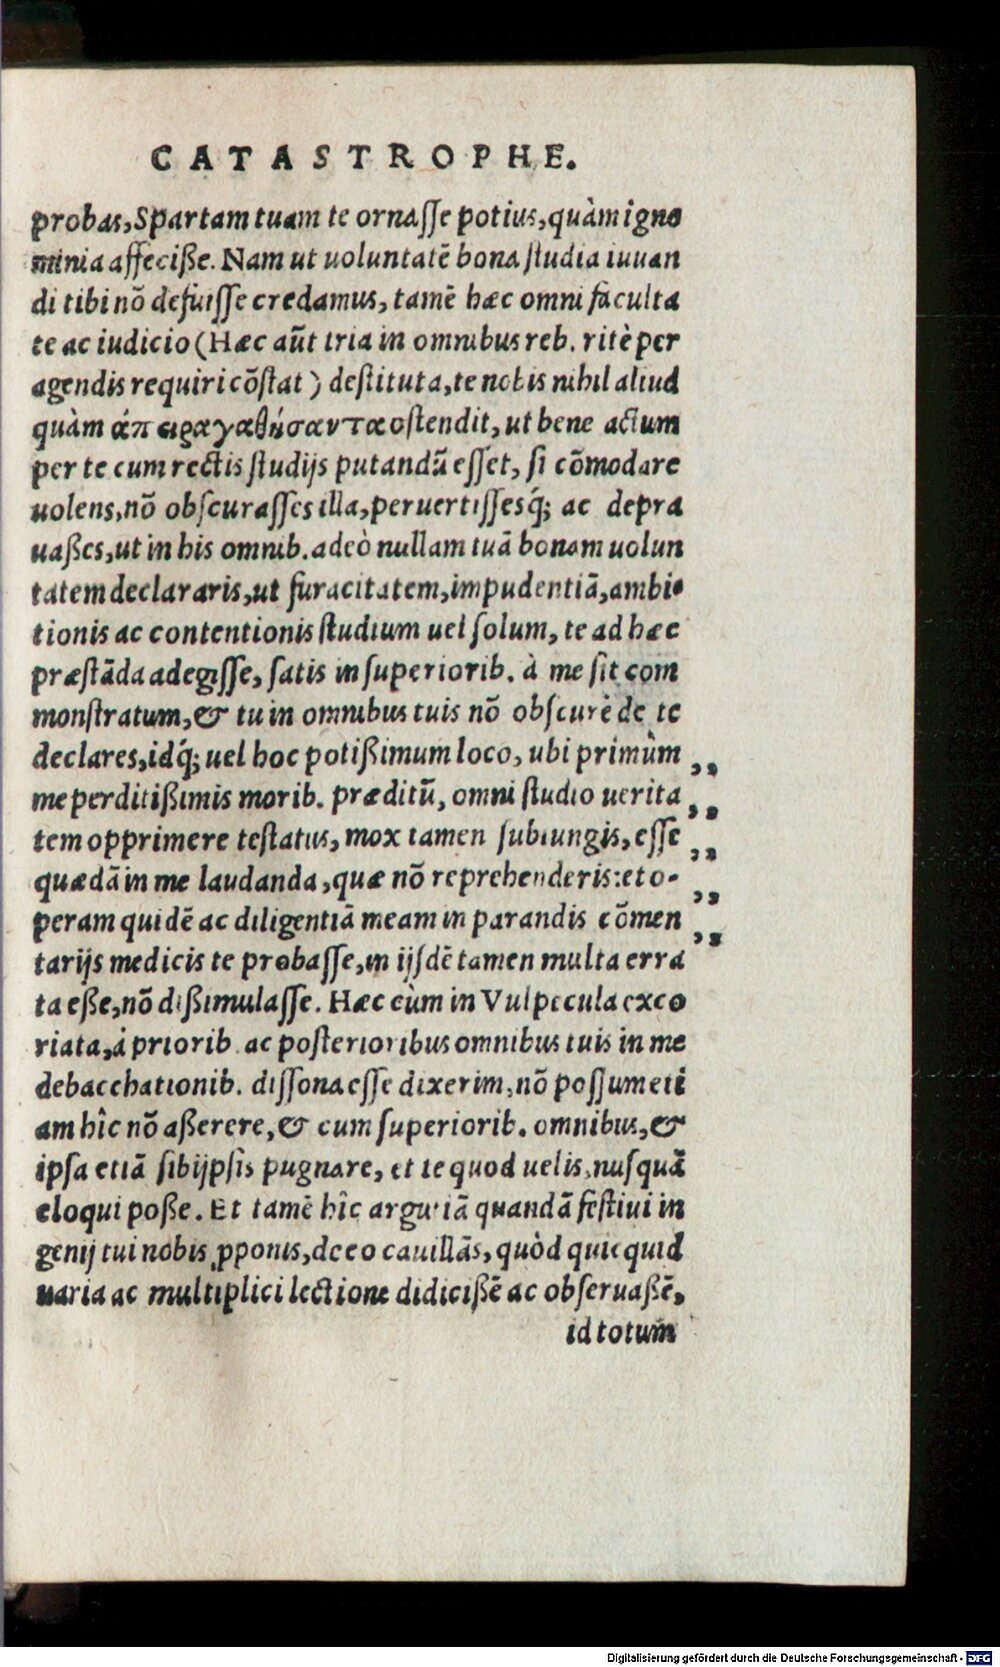 CATASTROPHE.
probas, Spartam tuam te ornasſe potius, quàm igno
minia affeciße. Nam ut uoluntatē bona ſtudia iuuan
di tibi nō defuisſe credamus, tamē hæc omni faculta
te ac iudicio (Hæc aūt tria in omnibus reb. ritè per
agendis requiri cōſtat) deſtituta, te nobis nihil aliud
quàm ἀπειραγαθήσαντα oſtendit, ut bene actum
per te cum rectis ſtudijs putandū esſet, ſi cōmodare
uolens, nō obſcurasſes illa, peruertisſesq́; ac depra
uaßes, ut in his omnib. adeò nullam tuā bonam uolun
tatem declararis, ut furacitatem, impudentiā, ambi-
tionis ac contentionis ſtudium uel ſolum, te ad hæc
præſtāda adegisſe, ſatis in ſuperiorib. à me ſit com
monſtratum, & tu in omnibus tuis nō obſcurè de te
declares, idq́; uel hoc potißimum loco, ubi primùm ,,
me perditißimis morib. præditū, omni ſtudio uerita ,,
tem opprimere teſtatus, mox tamen ſubiungis, esſe ,,
quædā in me laudanda, quæ nō reprehenderis: et o- ,,
peram quidē ac diligentiā meam in parandis cōmen ,,
tarijs medicis te probasſe, in ijſdē tamen multa erra
ta eße, nō dißimulasſe. Hæc cùm in Vulpecula exco
riata, à priorib. ac poſterioribus omnibus tuis in me
debacchationib. disſona esſe dixerim, nō posſum eti
am hîc nō aßerere, & cum ſuperiorib. omnibus, &
ipſa etiā ſibijpſis pugnare, et te quod uelis, nuſquā
eloqui poße. Et tamē hîc argutiā quandā feſtiui in
genij tui nobis ꝓponis, de eo cauillās, quòd quicquid
uaria ac multiplici lectione didicißē ac obſeruaßē,
id totum
Digitalisierung gefördert durch die Deutsche Forschungsgemeinschaft - DFG